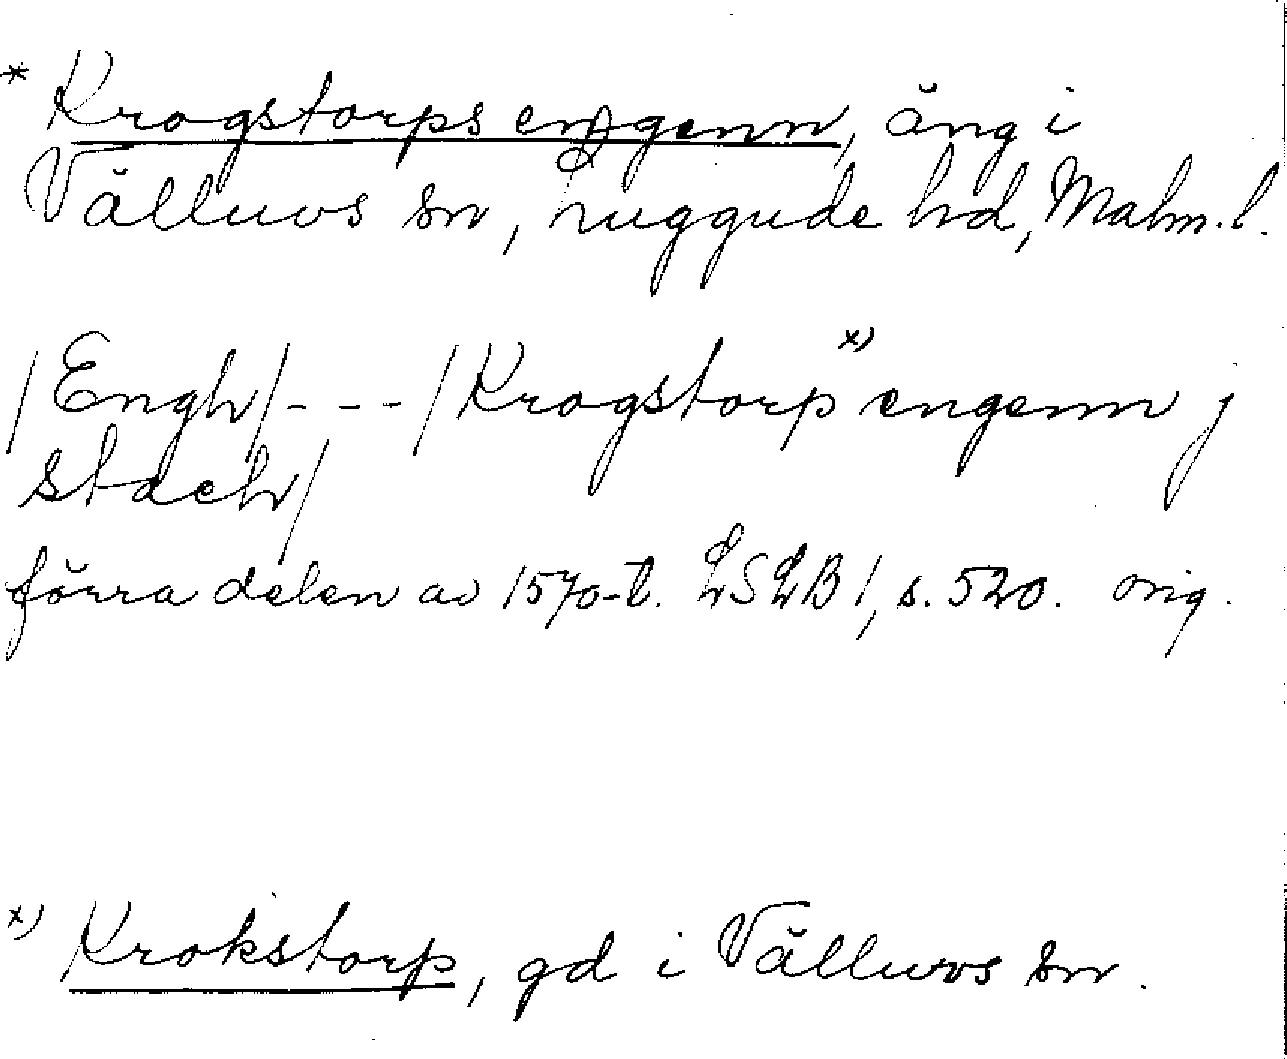 * Krogstorps engenn, äng i
Välluvs sn, Luggude hd, Malm. l.
/Engh/ - - - /Krogstorp x) engenn j
stæch/
förra delen av 1570-t. LSLB 1, s. 520. orig.
x) Krokstorp, gd i Välluvs sn.